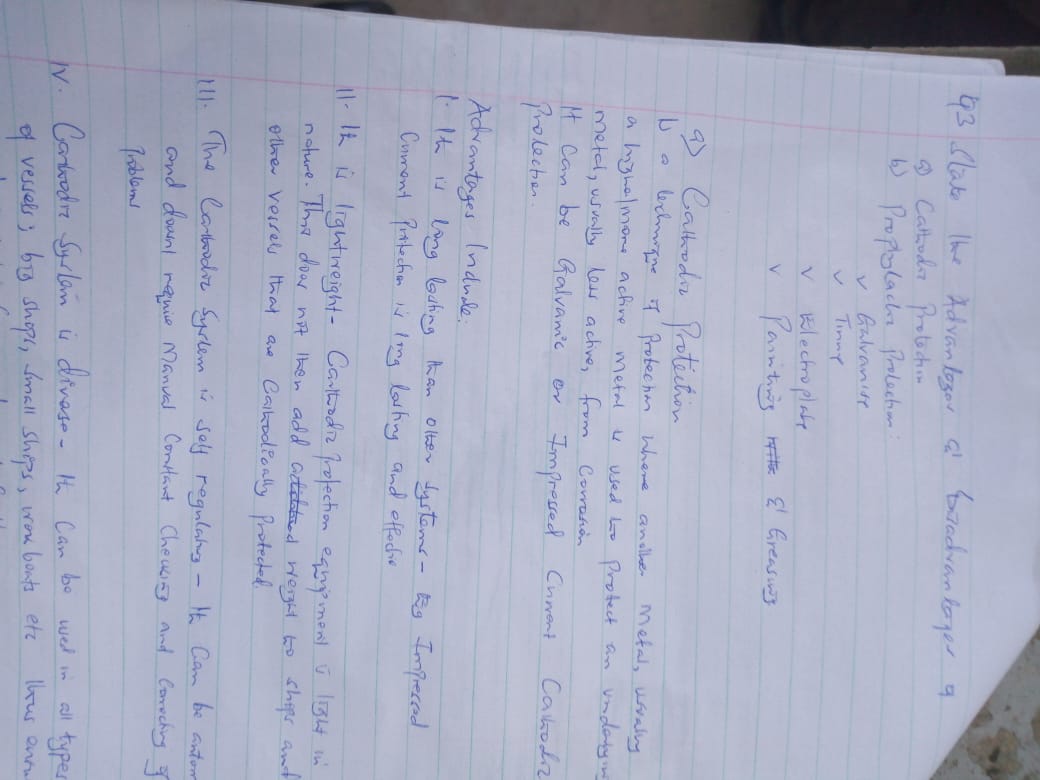 Q3 State the Advantages & Disadvantages of
a) Cathodic Protection
b) Prophylactic Protection:
✓ Galvanise
✓ Tinning
✓ Electroplate
✓ Painting & Greasing
a) Cathodic Protection
Is a technique of Protection where another metal, usually
a higher/more active metal is used to protect an underlying
metal, usually less active, from Corrosion
It can be Galvanic or Impressed Current Cathodic
Protection.
Advantages Include:
I. It is long lasting than other systems - Eg Impressed
Current Protection is long lasting and effective
II. It is lightweight - Cathodic Protection equipment is light in
nature. This does not then add weight to ships and
other vessels that are Cathodically protected.
III. The Cathodic System is self regulating - It can be autom
and doesn't require Manual Constant Checking and Correcting of
Problems
IV. Cathodic System is diverse - It can be used in all types
of vessels; big ships, small ships, iron boats etc thus